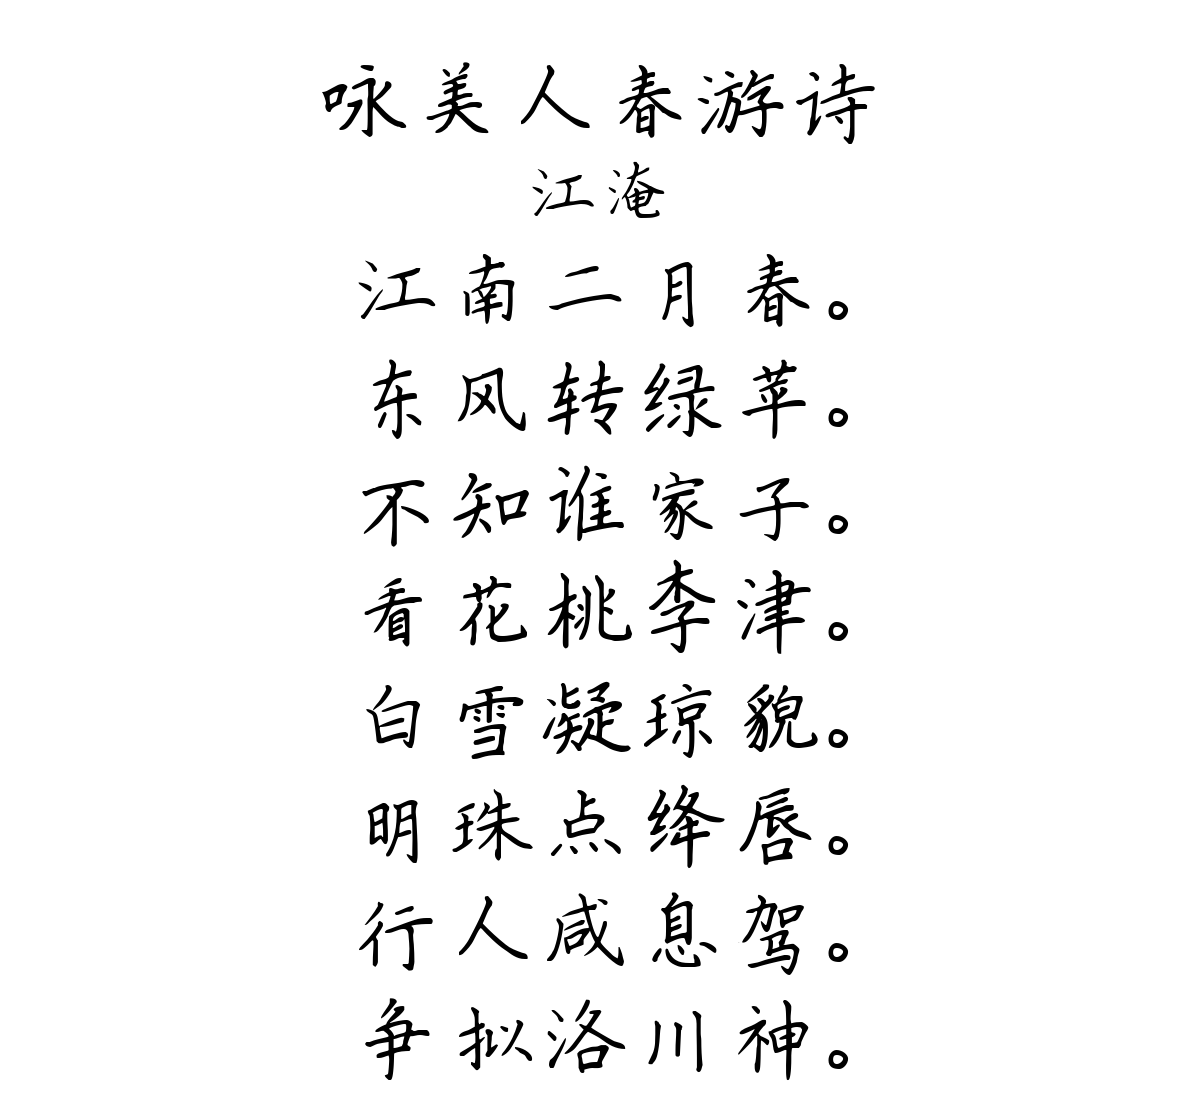 咏美人春游诗
江淹
江南二月春。
东风转绿苹。
不知谁家子。
看花桃李津。
白雪凝琼貌。
明珠点绛唇。
行人咸息驾。
争拟洛川神。